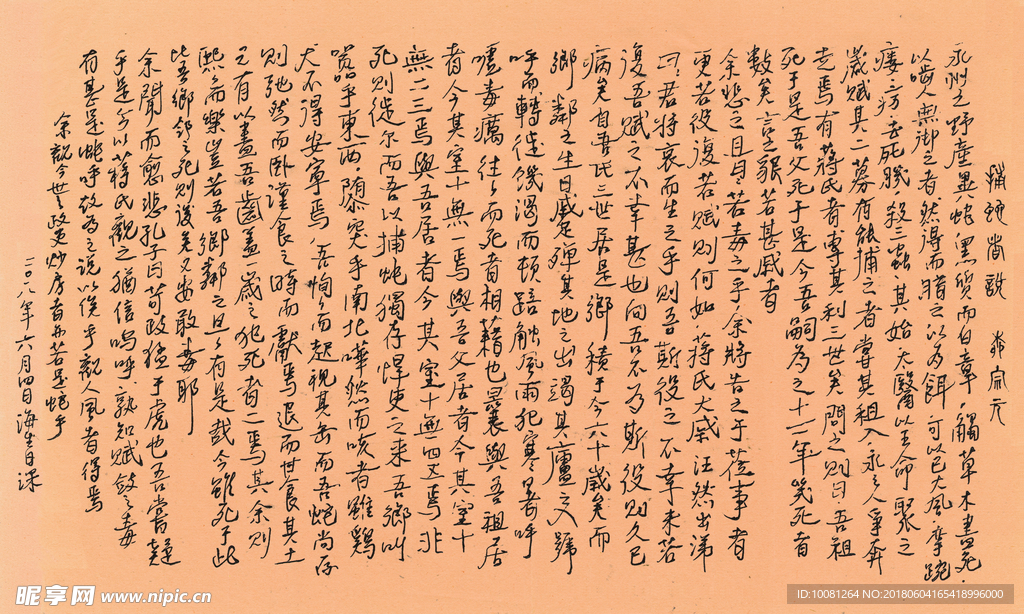 捕蛇者说 柳宗元
永州之野产异蛇黑质而白章触草木尽死
以啮人无御之者然得而腊之以为饵可以已大风挛踠
瘘疠去死肌杀三虫其始太医以王命聚之
岁赋其二募有能捕之者当其租入永之人争奔
走焉有蒋氏者专其利三世矣问之则曰吾祖
死于是吾父死于是今吾嗣为之十二年几死者
数矣言之貌若甚戚者
余悲之且曰若毒之乎余将告之于莅事者
更若役复若赋则何如蒋氏大戚汪然出涕
曰君将哀而生之乎则吾斯役之不幸未若
复吾赋之不幸甚也向吾不为斯役则久已
病矣自吾氏三世居是乡积于今六十岁矣而
乡邻之生日蹙殚其地之出竭其庐之入号
呼而轉徙饥渴而顿踣触风雨犯寒暑呼
嘘毒疠往往而死者相藉也曩與吾祖居
者今其室十無一焉與吾父居者今其室十
無二三焉與吾居者今其室十無四五焉非
死则徙尔而吾以捕蛇獨存悍吏之来吾鄉叫
嚣乎東西隳突乎南北嘩然而骇者雖鷄
犬不得安寧焉吾恂恂而起視其缶而吾蛇尚存
则弛然而卧謹食之時而獻焉退而甘食其土
之有以盡吾齒蓋一歲之犯死者二焉其余则
熙熙而樂豈若吾鄉鄰之旦旦有是哉今雖死乎此
比吾鄉邻之死则後矣又安敢毒耶
余聞而愈悲孔子曰苛政猛于虎也吾嘗疑
乎是今以蒋氏觀之猶信嗚呼孰知赋敛之毒
有甚是蛇乎故为之说以俟乎觀人風者得焉
余觀今世之政
二〇一八年六月四日海生日课
昵享网 www.nipic.cn
ID:10081264 NO:20180604165418996000